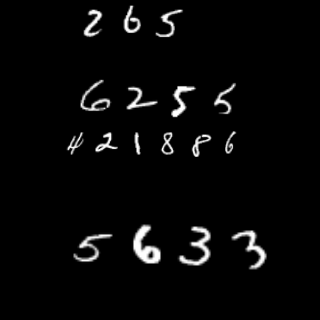 265
6255
421886
5633